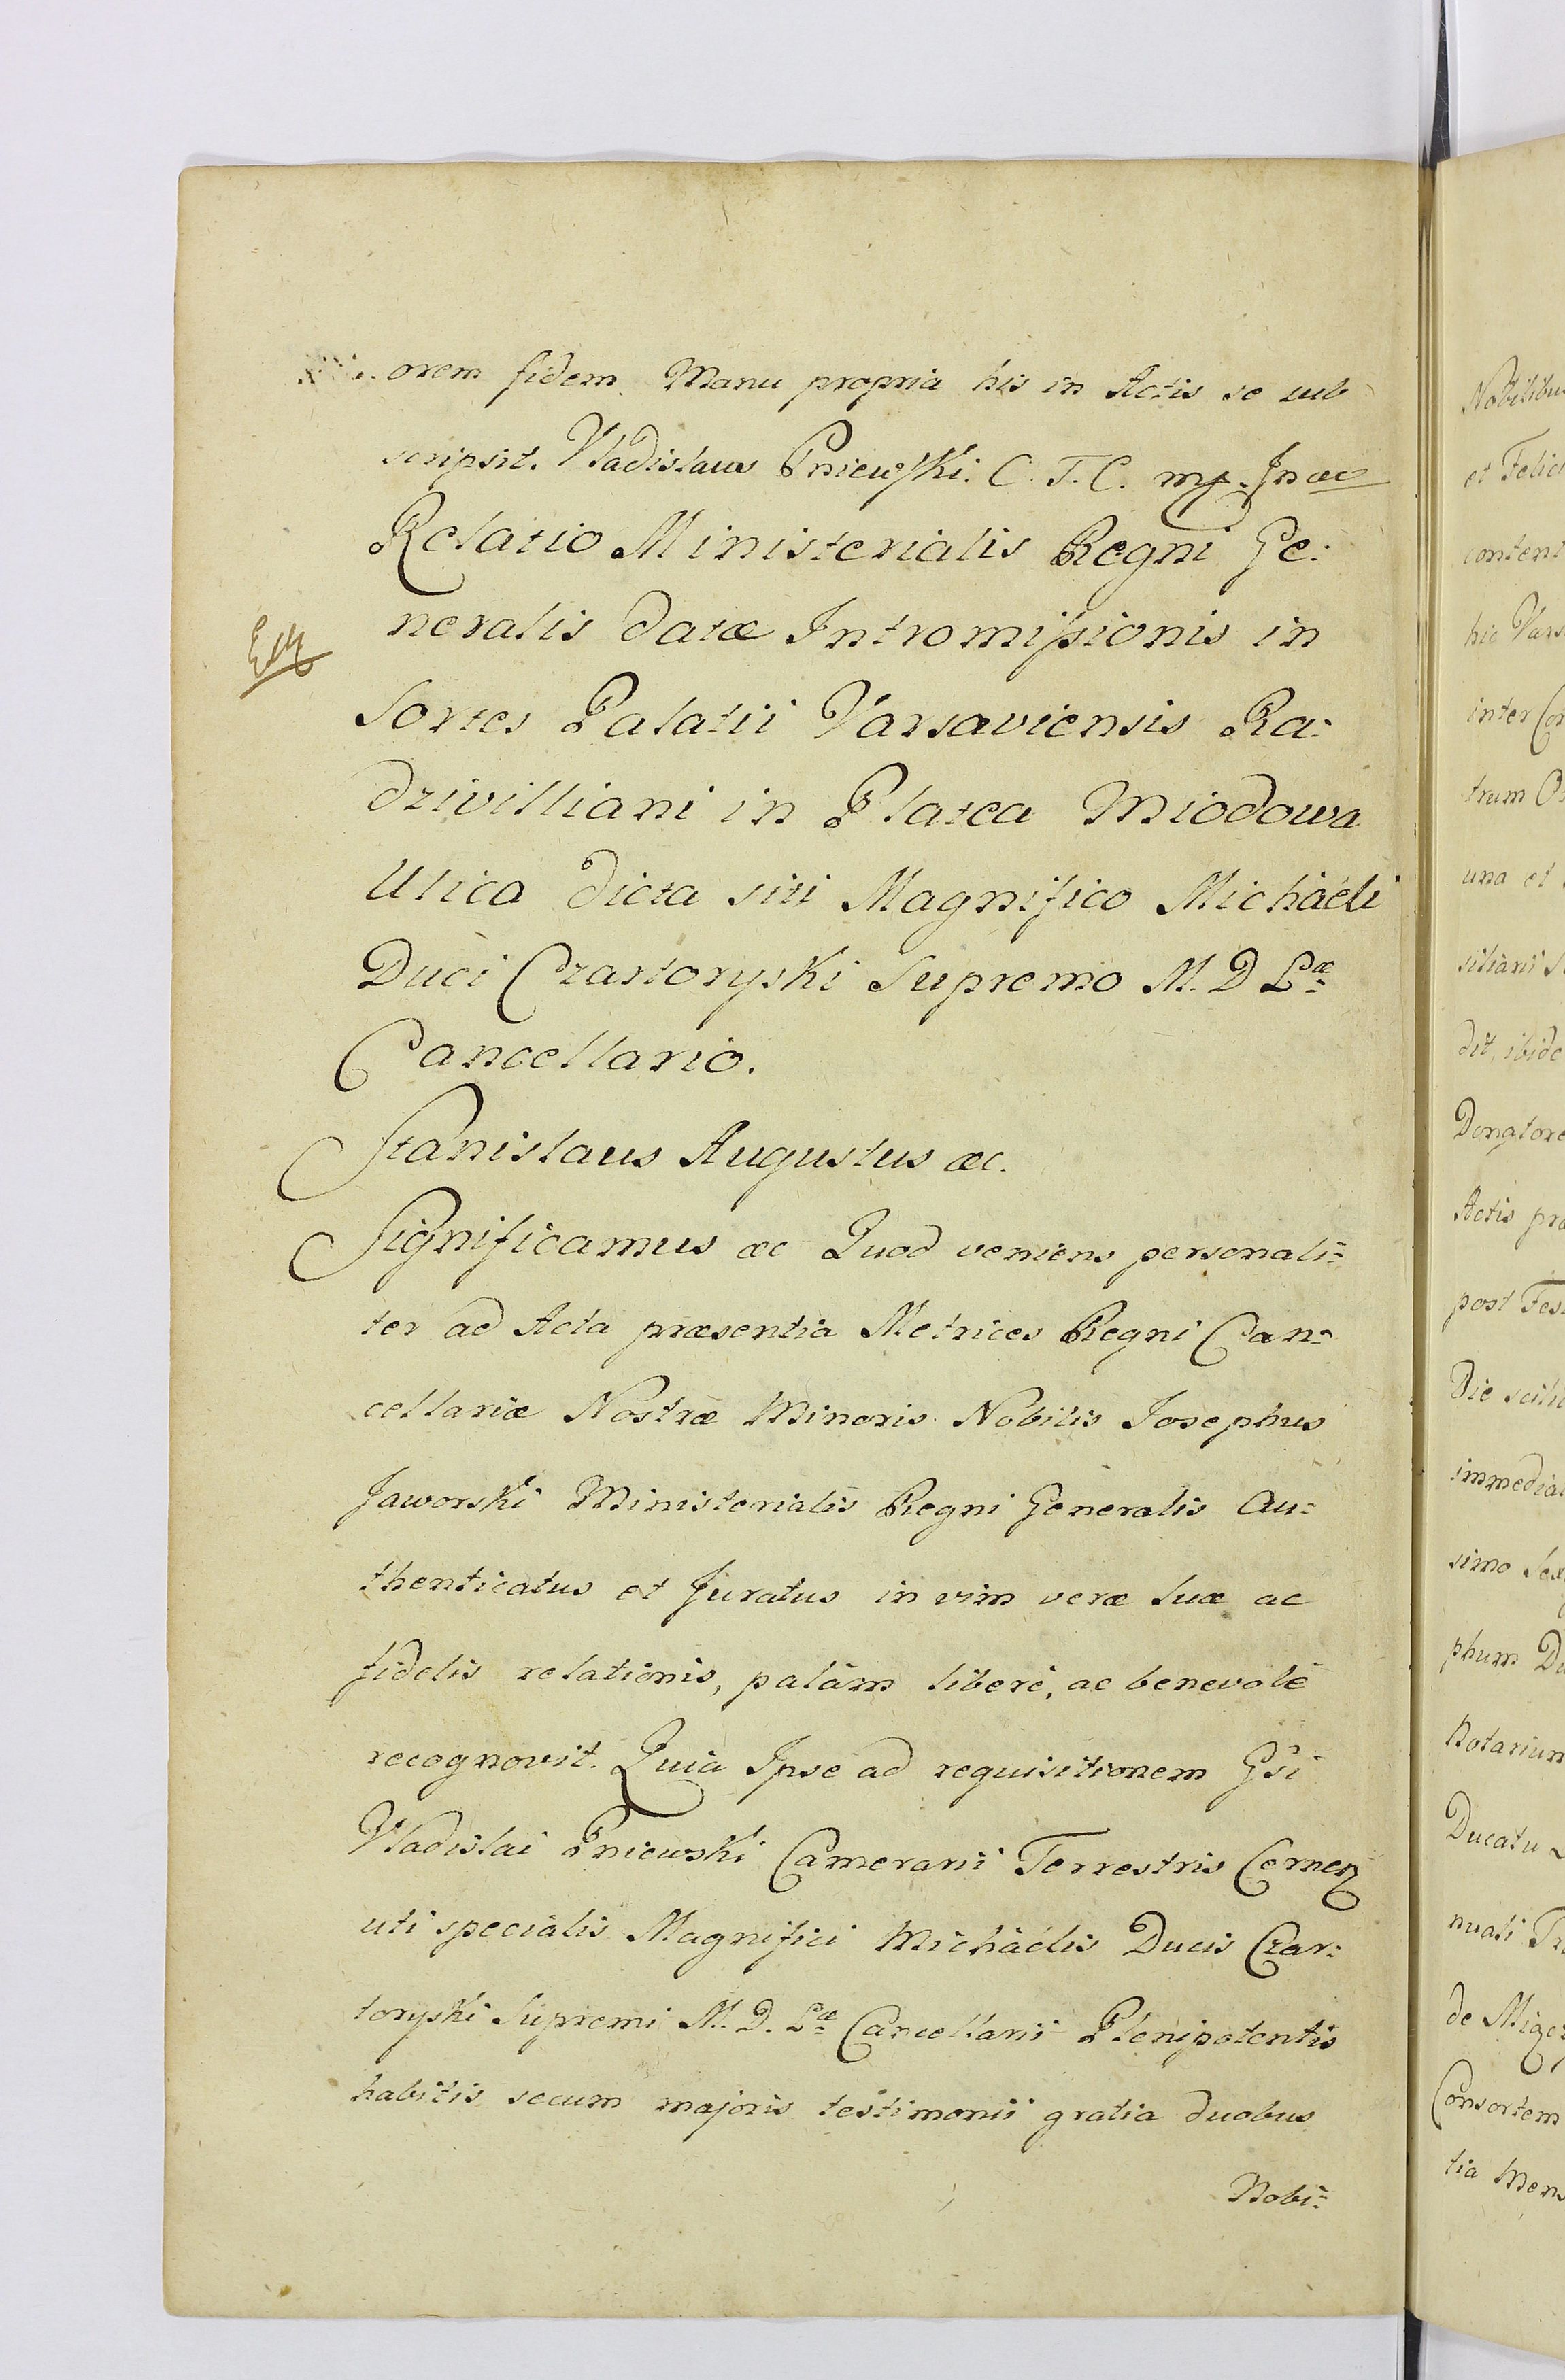 orem fidem Manu propria his in Actis se sub
scripsit. Vladislaus Pniewski. C. T. C. mp.
Relatio Ministerialis Regni Ge:
neralis datæ Intromissionis in
Sortes Palatii Varsaviensis Ra:
dzivilliani in Platea Miodowa
Ulica dicta siti Magnifico Michaeli
Duci Czartoryski Supremo M. D. Læ
Cancellario.
Stanislaus Augustus æc.
Significamus æc Quod veniens personali:
ter ad Acta præsentia Metrices Regni Can:
cellariæ Nostræ Minoris Nobilis Josephus
Jaworski Ministerialis Regni Generalis Au:
thenticatus et Juratus in vim veræ suæ ac
fidelis relationis, palàm liberè, ac benevolè
recognovit. Quia Ipse ad requisitionem Gsi
Vladislai Pniewski Camerarii Terrestris
uti specialis Magnifici Michaelis Ducis Czar:
toryski Supremi M. D. Læ Cancellarii Plenipotentis
habitis secum majoris testimonii gratia duobus
Nobi:
Nobilibus
et Felici
content
hic Vars
inter
trum
una et
siliarii
dit, ibide
Actis
post
Die
immedia
simo
phum
Notarium
Ducatu
nuali
de
Consortem
tia Mens